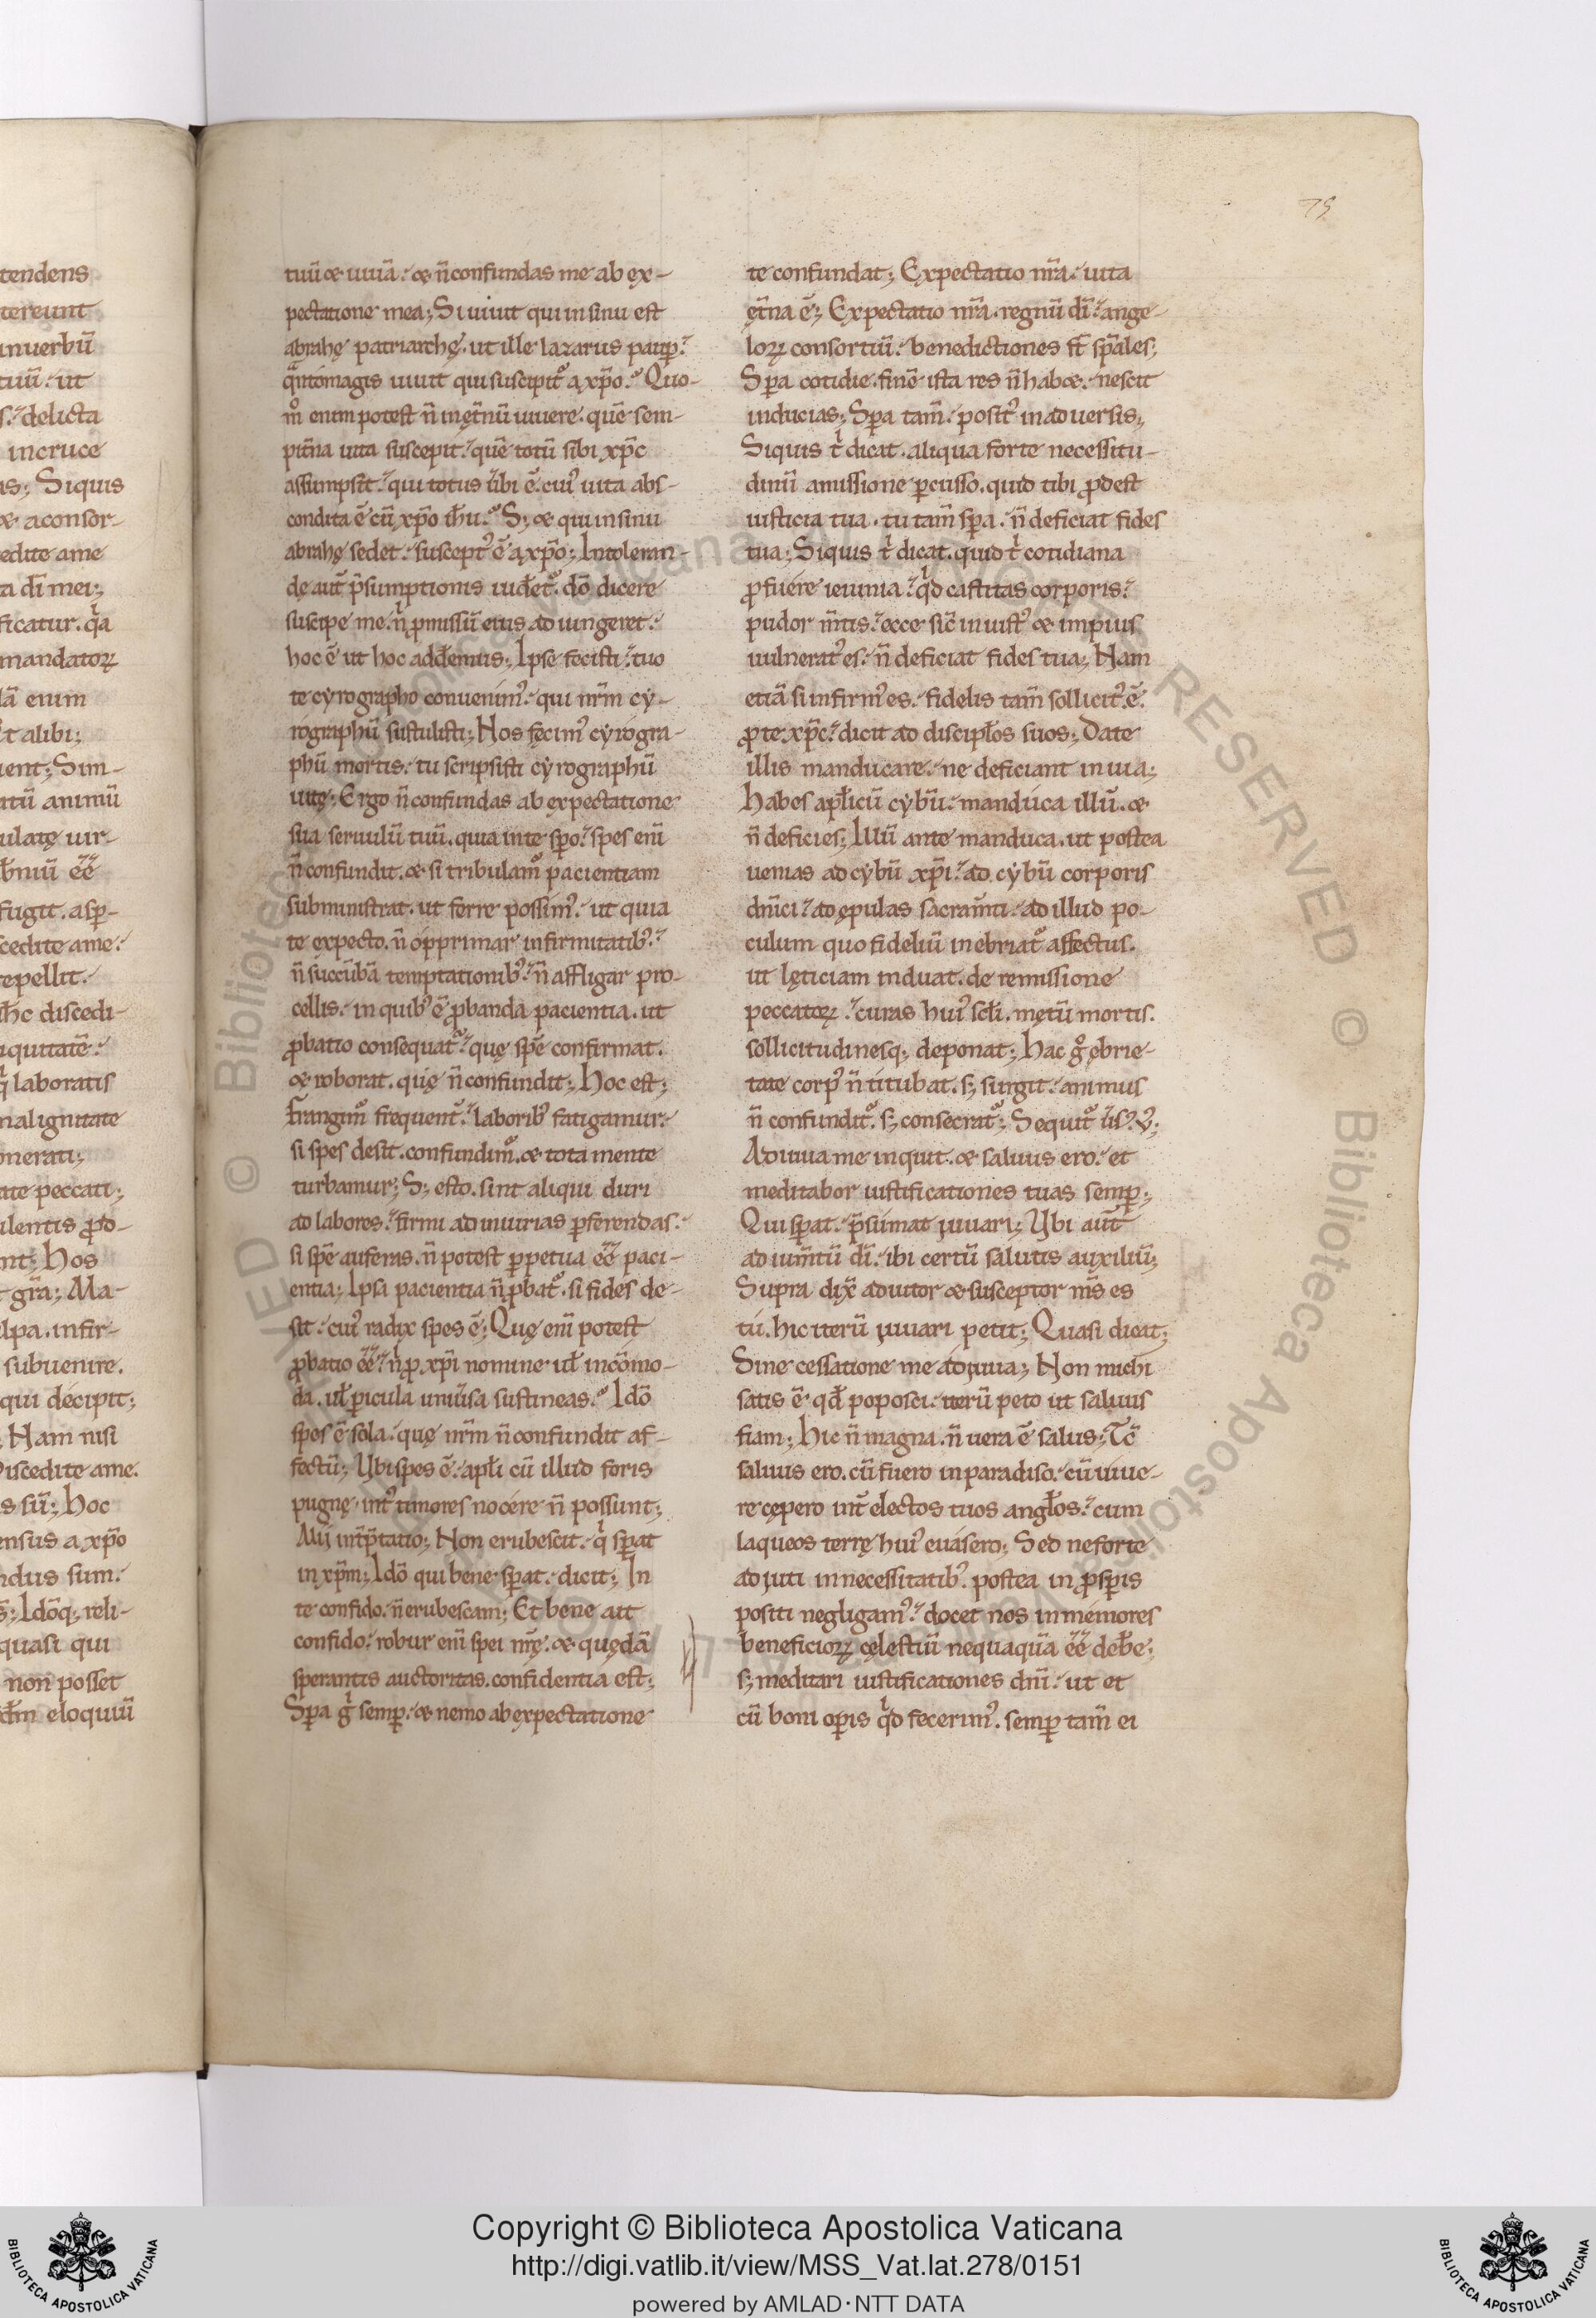 tendens
tereunt
inuerbū
tuū. ut
s. delicta
incruce
as; Siquis
& aconsor-
edite ame
ta dī mei;
ficatur. qͥa
mandatoꝝ
lā enim
t alibi;
ient; Sim-
atū animū
ulatę uir-
bꝛ̄niū ēē
fugit. asꝑ-
scedite ame.
repellit.
discedi-
iquitatē.
laboratis
malignitate
onerati;
ate peccati;
ulentis ꝓd-
nt; Hos
grā; Ma-
lpa. infir-
subuenire.
qui decipit;
Nam nisi
Discedite ame.
s sū; Hoc
ensus a xp̄o
ndus sum.
Idōq; reli-
quasi qui
non posset
eloquiū
75
tuū & uiuā. & n̄ confundas me ab ex-
pectatione mea; Si uiuit qui in sinu est
abrahę patriarchę. ut ille lazarus pauꝑ.
qͣntomagis uiuit qui suscipit᷑ a xp̄o. Quo-
m̊ enim potest n̄ in ęt̄nū uiuere. quē sem-
pit̄na uita suscepit. quē totū sibi xp̄c
assumpsit. qui totus ibi ē. cuiꝰ uita abs-
condita ē cū xp̄o ih̄u. S; & qui in sinu
abrahę sedet. susceptꝰ ē a xp̄o; Intoleran-
dę aut̄ p̄sumptionis uideret᷑. dō dicere
suscipe me. nͥ ꝓmissū eius adiungeret.
hoc ē ut hoc adderemus; Ipse fecisti. tuo
te cyrographo conuenimꝰ. qui nr̄m cy-
rographū sustulisti; Nos fecimꝰ cyrogra-
phū mortis. tu scripsisti cyrographū
uitę; Ergo n̄ confundas ab expectatione
sua seruulū tuū. quia in te spo. spes eni̅
n̄ confundit. & si tribulam᷑ pacientiam
subministrat. ut ferre possimꝰ. ut quia
te expecto. n̄ opprimar infirmitatibꝰ.
n̄ succūbā temptationibꝰ. n̄ affligar pro-
cellis. in quibꝰ ē ꝓbanda pacientia. ut
ꝓbatio consequat᷑. quę spē confirmat.
& roborat. quę n̄ confundit; Hoc est;
Frangim᷑ frequent̄. laboribꝰ fatigamur.
si spes desit. confundim᷑. & tota mente
turbamur; S; esto. sint aliqui duri
ad labores. firmi ad iniurias ꝑferendas.
si spē auferas. n̄ potest ꝑpetua ēē paci-
entia; Ipsa pacientia n̄ ꝓbat᷑. si fides de-
sit. cuiꝰ radix spes ē; Quę eni̅ potest
ꝓbatio ēē. nͥ ꝓ xp̄i nomine ul̄ incōmo-
da. ul̄ ꝑicula uniūsa sustineas. Idō
spes ē sola. quę nr̄m n̄ confundit af-
fectū; Ubi spes ē. apl̄i cū illud foris
pugnę. int̄ timores nocere n̄ possunt;
Alij int̄p̄tatio; Non erubescit. qͥ sꝑat
in xp̄m; Idō qui bene sꝑat. dicit; In
te confido. n̄ erubescam; Et bene ait
confido. robur eni̅ spei nr̄ę. & quędā
sperantis auctoritas. confidentia est;
Sꝑa gͥ semꝑ. & nemo ab expectatione
te confundat; Expectatio nr̄a. uita
ęt̄na ē; Expectatio nr̄a. regnū dī. ange-
loꝝ consortiū. benedictiones st̄ spi̅ales;
Sꝑa cotidie. finē ista res n̄ habet. nescit
inducias; Sꝑa tam̄. positꝰ in aduersis;
Siquis tͥ dicat. aliqua forte necessitu-
dinū amissione ꝑcusso. quid tibi ꝓdest
iusticia tua. tu tam̄ sꝑa. n̄ deficiat fides
tua; Siquis tͥ dicat. quid tͥ cotidiana
ꝓfuere ieiunia. qͥd castitas corporis.
pudor m̄tis. ecce sic̄ iniustꝰ & impius
uulneratꝰ es. n̄ deficiat fides tua; Nam
etiā si infirmꝰ es. fidelis tam̄ sollicitꝰ ē.
ꝓ te xp̄c. dicit ad discipl̄os suos; Date
illis manducare. ne deficiant in uia;
Habes apl̄icū cybū. manduca illū. &
n̄ deficies; Illū ante manduca. ut postea
uenias ad cybū xp̄i. ad cybū corporis
dn̄ici. ad ępulas sacram̄ti. ad illud po-
culum quo fideliū inebriat᷑ affectus.
ut lęticiam induat. de remissione
peccatoꝝ. curas huiꝰ sc̄li. mętū mortis.
sollicitudinesq; deponat; Hac g̊ ębrie-
tate corpꝰ n̄ titubat. s; surgit. animus
n̄ confundit᷑. s; consecrat᷑; Sequit᷑ ūs. v̄;
Adiuua me inquit. & saluus ero. et
meditabor iustificationes tuas semꝑ;
Qui sꝑat. p̄sumat iuuari; Ubi aut̄
adium̄tū dī. ibi certū salutis auxiliū;
Supra dix̄ adiutor & susceptor ms̄ es
tu. hic iterū iuuari petit; Quasi dicat;
Sine cessatione me adiuua; Non michi
satis ē qd̄ poposci. iterū peto ut saluus
fiam; Hic n̄ magna. n̄ uera ē salus; Tc̄
saluus ero. cū fuero in paradiso. cū uiue-
re cępero int̄ electos tuos angl̄os. cum
laqueos terrę huiꝰ euasero; Sed ne forte
adiuti in necessitatibꝰ. postea in ꝓsꝑis
positi negligamꝰ. docet nos inmemores
beneficioꝝ cęlestiū nequaquā ēē deb̄e;
s; meditari iustificationes dn̄i. ut et
cū boni oꝑis qͥd fecerimꝰ. semꝑ tam̄ ei
Copyright © Biblioteca Apostolica Vaticana
http://digi.vatlib.it/view/MSS_Vat.lat.278/0151
powered by AMLAD·NTT DATA
BIBLIOTECA APOSTOLICA VATICANA
BIBLIOTECA APOSTOLICA VATICANA